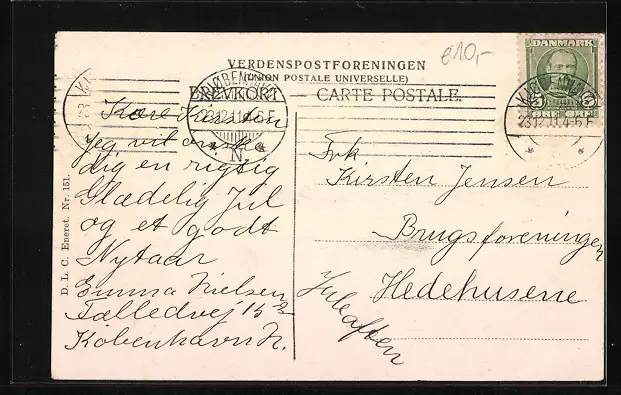 €10,-
VERDENSPOSTFORENINGEN
(UNION POSTALE UNIVERSELLE)
BREVKORT
CARTE POSTALE.
DANMARK
5 ØRE
KJØBENHAVN
23.12.11.4-5 E
N.
Kære Kirsten
Jeg vil ønske
dig en rigtig
Glædelig Jul
og et godt
Nytaar
Emma Nielsen
Fælledvej 15
København N.
Frk
Kirsten Jensen
Brugsforeningen
Hedehusene
Juleaften
D. L. C. Eneret. Nr. 151.